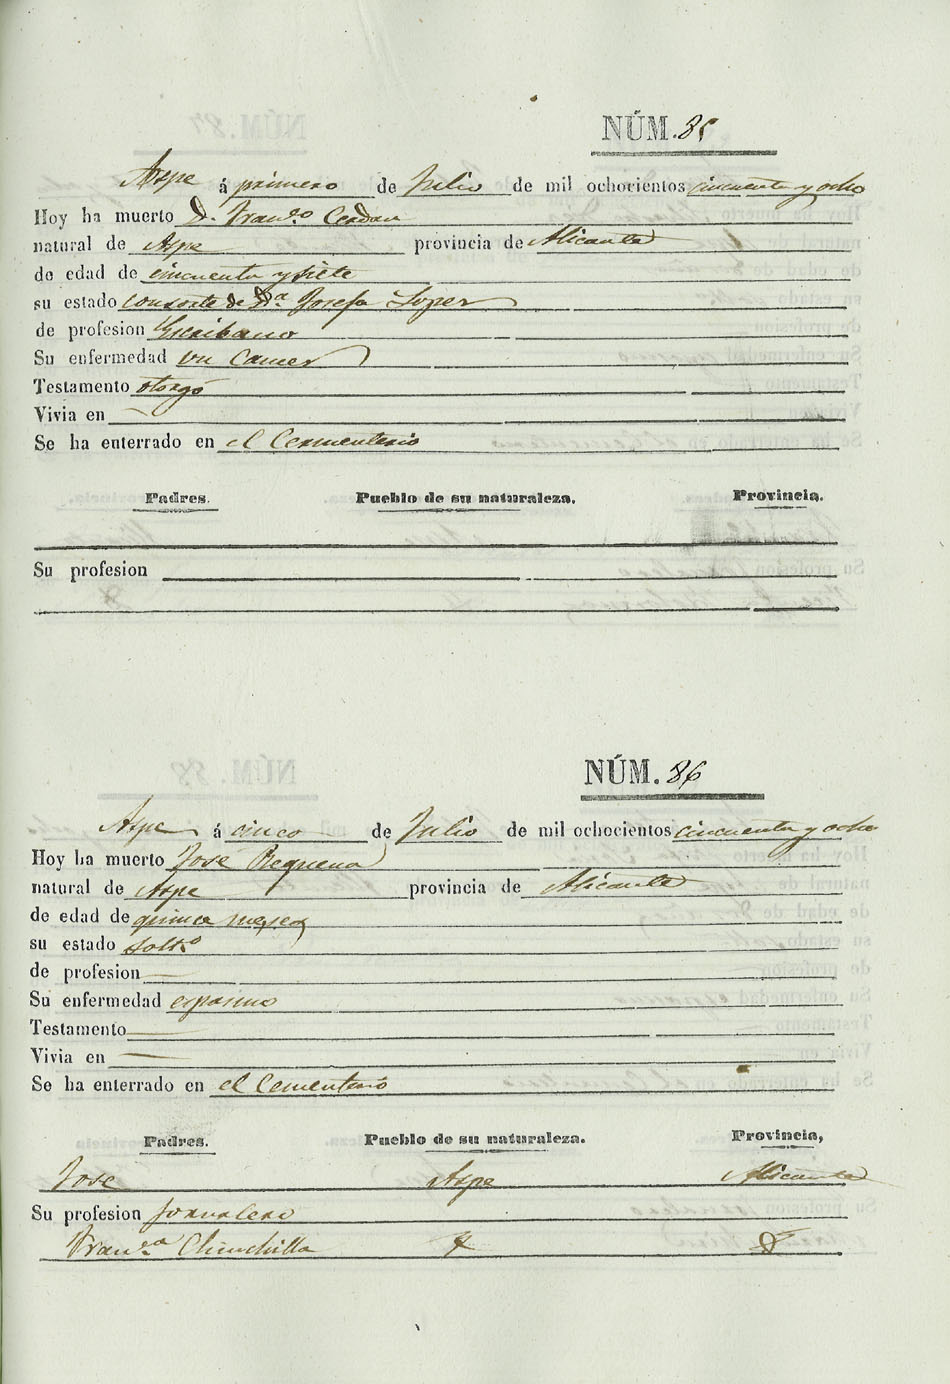 NÚM. 85
Aspe á primero de Julio de mil ochocientos cincuenta y ocho
Hoy ha muerto D. Franco Cerdan
natural de Aspe provincia de Alicante
de edad de cincuenta y siete
su estado consorte de Da. Josefa Lopez
de profesion Escribano
Su enfermedad un Cancer
Testamento otorgó
Vivia en
Se ha enterrado en el Cementerio
Padres. Pueblo de su naturaleza. Provincia.
Su profesion
NÚM. 86
Aspe á cinco de Julio de mil ochocientos cincuenta y ocho
Hoy ha muerto José Requena
natural de Aspe provincia de Alicante
de edad de quince meses
su estado Solto
de profesion
Su enfermedad espasmo
Testamento
Vivia en
Se ha enterrado en el Cementerio
Padres. Pueblo de su naturaleza. Provincia,
Jose Aspe Alicante
Su profesion Jornalero
Franca Chinchilla